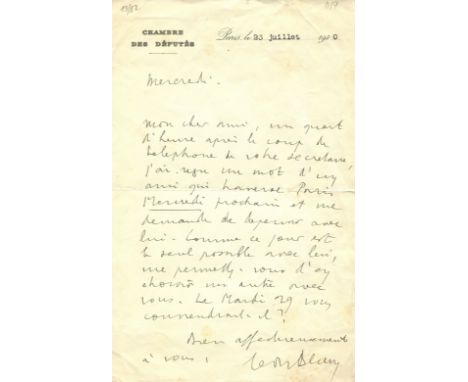 13/52
CHAMBRE
DES DÉPUTÉS
Paris, le 23 juillet 1920
Mercredi.
Mon cher ami, un quart
d'heure après le coup de
téléphone de votre secrétaire
j'ai reçu un mot d'un
ami qui traverse Paris
Mercredi prochain et me
demande de déjeuner avec
lui. Comme ce jour est
le seul possible avec lui,
me permettez-vous d'en
choisir un autre avec
vous. Le Mardi 29 vous
conviendrait-il ?
Bien affectueusement
à vous,
Léon Blum